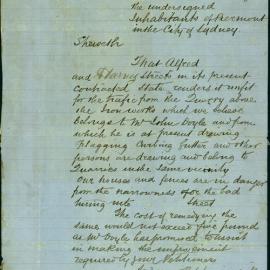 the undersigned
Inhabitants of Pyrmont
in the City of Sydney
Sheweth
That Alfred
and Harvey Streets in its present
Contracted state renders it unfit
for the traffic from the Quarry above
the Iron works which we believe
Belongs to Mr John Doyle and from
which he is at present drawing
Flagging Curbing Gutter and other
persons are drawing and belong to
Quarries in the same vicinity
Our houses and fences are in danger
from the narrowness of the
Street
The Cost of remedying the
same would not exceed five pound
as Mr Doyle has promised to assist
in making the improvement
required by your Petitioners